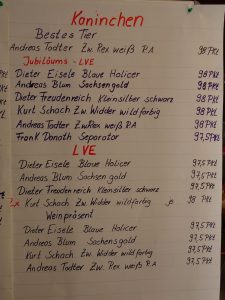 Koninchen
Bestes Tier
Andreas Todter Zw. Rex weiß R.A 98 Pkt
Jubilöums - LVE
Dieter Eisele Blaue Holicer 98 Pkt
Andreas Blum Sachsengold 98 Pkt
Dieter Freudenreich Kleinsilber schwarz 98 Pkt
Kurt Schach Zw. Widder wildfarbig 98 Pkt
Andreas Todter Zw Rex weiß R A 98 Pkt
Frank Donath Separator 97,5 Pkt
LVE
Dieter Eisele Blaue Holicer 97,5 Pkt
Andreas Blum Sachsen gold 97,5 Pkt
Dieter Freudenreich Kleinsilber schwarz 97,5 Pkt
2x Kurt Schach Zw. Widder wildfarbig je 98 Pkt
Weinpräsent
Dieter Eisele Blaue Holicer 97,5 Pkt
Andreas Blum Sachsengold 97,5 Pkt
Kurt Schach Zw. Widder wild farbig 97,5 Pkt
Andreas Todter Zw. Rex weiß R.A 97,5 Pkt